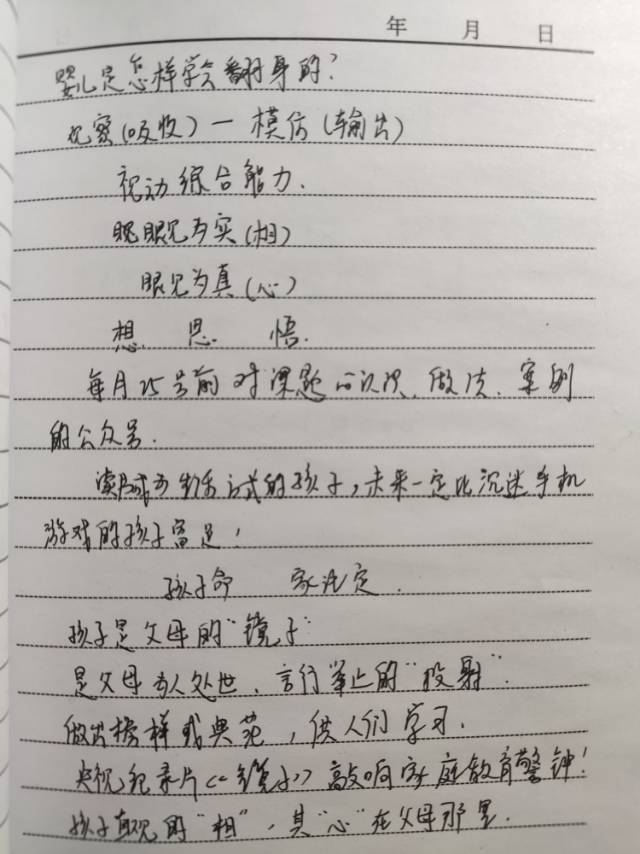 年 月 日
婴儿是怎样学会翻身的?
观察(吸收)— 模仿(输出)
视动综合能力.
眼见为实(相)
眼见为真(心)
想 思 悟.
每月25号前对课题的认识、做法、案例
的公众号.
读书成为生活方式的孩子,未来一定比沉迷手机
游戏的孩子富足!
孩子命 家注定.
孩子是父母的"镜子"
是父母为人处世、言行举止的"投射".
做出榜样或典范,供人们学习.
央视纪录片《镜子》敲响家庭教育警钟!
孩子直观的"相",其"心"在父母那里.